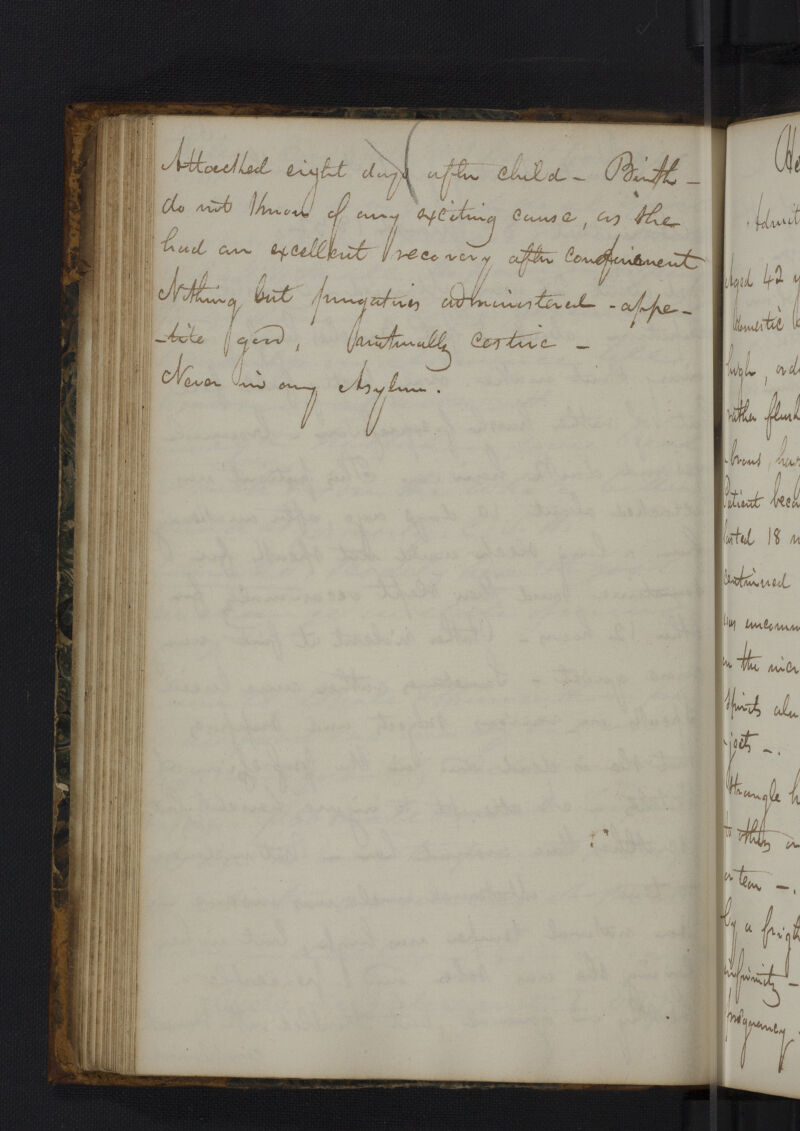 Attacked eight days after child - Birth -
do not know of any exciting cause, as she
had an excellent recovery after confinement
Nothing but purgatives administered - appe-
-tite good, naturally costive -
Never in any Asylum.
Admit
Aged 42 y
domestic
high, ord
rather flush
brows, have
Patient beca
lasted 18 m
continued
was uncomm
in the
spirits
jects -.
strangle h
to others or
or tear -.
by a fright
infirmity -
pregnancy.